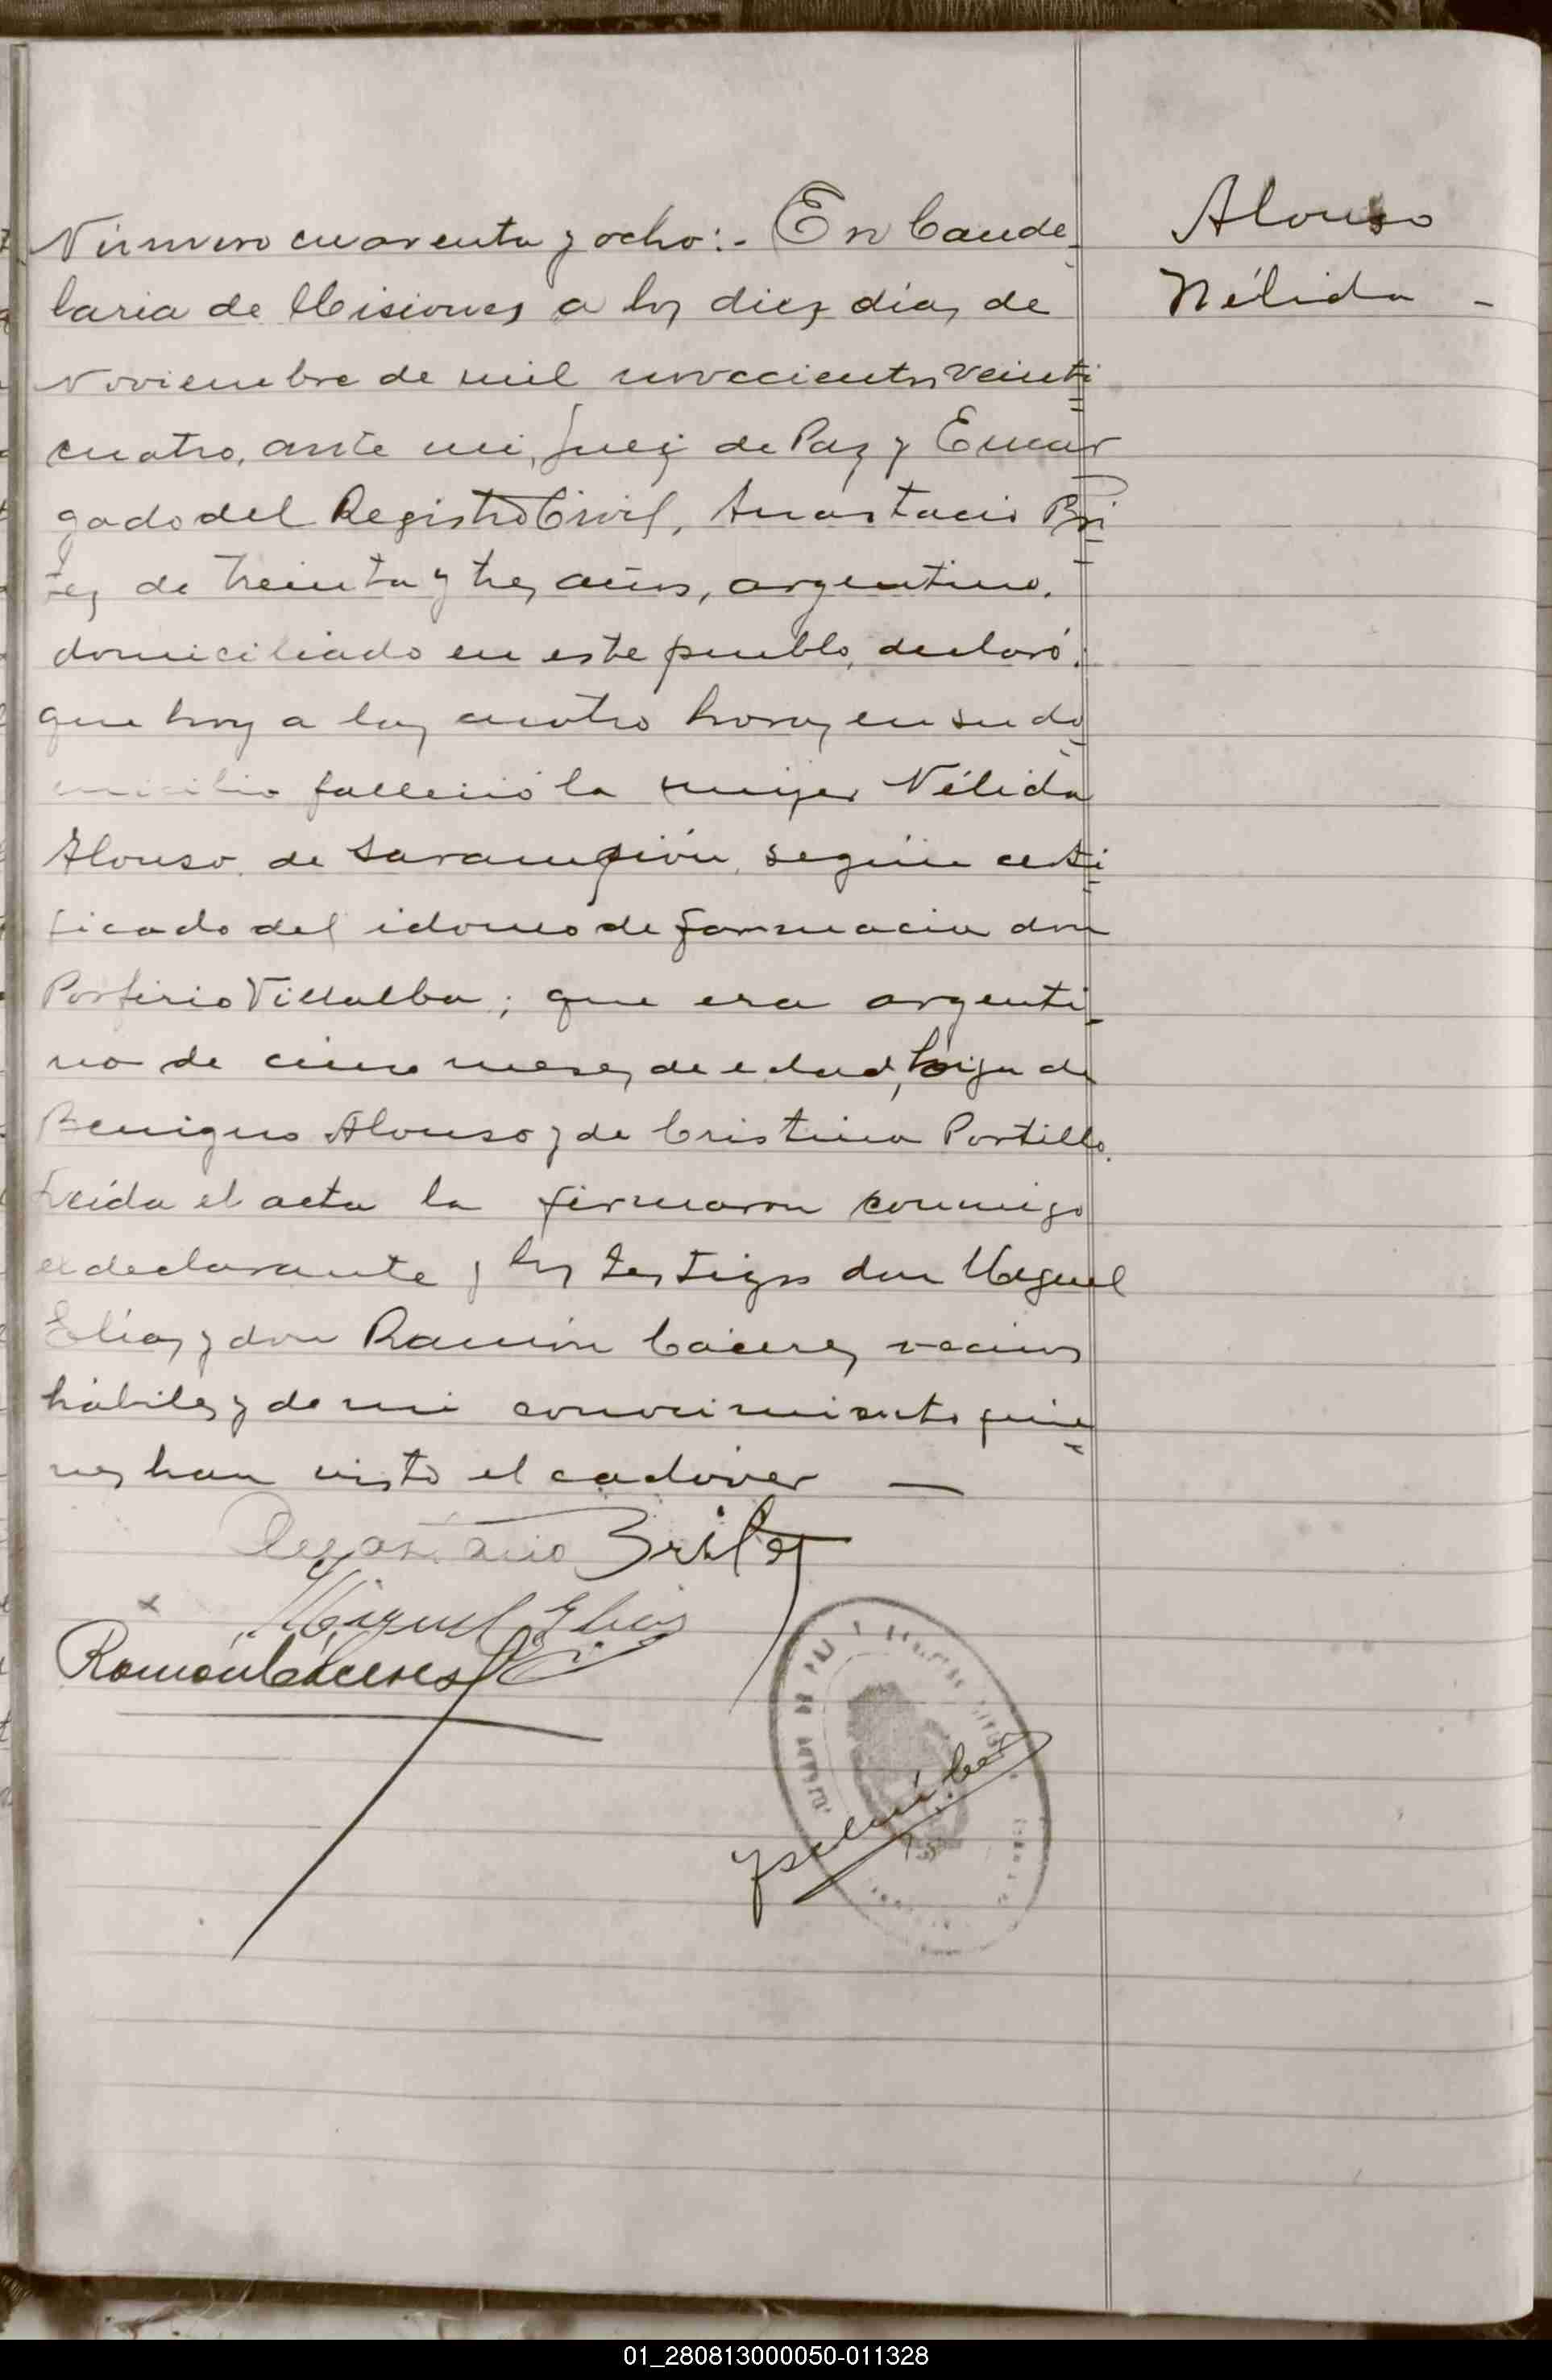 Alonso
Nélida -
Número cuarenta y ocho:- En Cande-
laria de Misiones a los diez días de
Noviembre de mil novecientos veinti=
cuatro, ante mi, Juez de Paz y Encar
gado del Registro Civil, Anastacio Bri=
tez de treinta y tres años, argentino,
domiciliado en este pueblo, declaró:
que hoy a las cuatro horas, en su do=
micilio falleció la mujer Nélida
Alonso, de sarampión, según certi=
ficado del idoneo de farmacia don
Porfirio Villalba; que era argenti-
na de cinco meses de edad, hija de
Benigno Alonso y de Cristina Portillo.
Leída el acta la firmaron conmigo
el declarante y los testigos don Miguel
Elías y don Ramón Cáceres, vecinos
hábiles y de mi conocimiento quie=
nes han visto el cadáver —
Anastacio Britez
x Miguel Elias
Ramón Cáceres
01_280813000050-011328